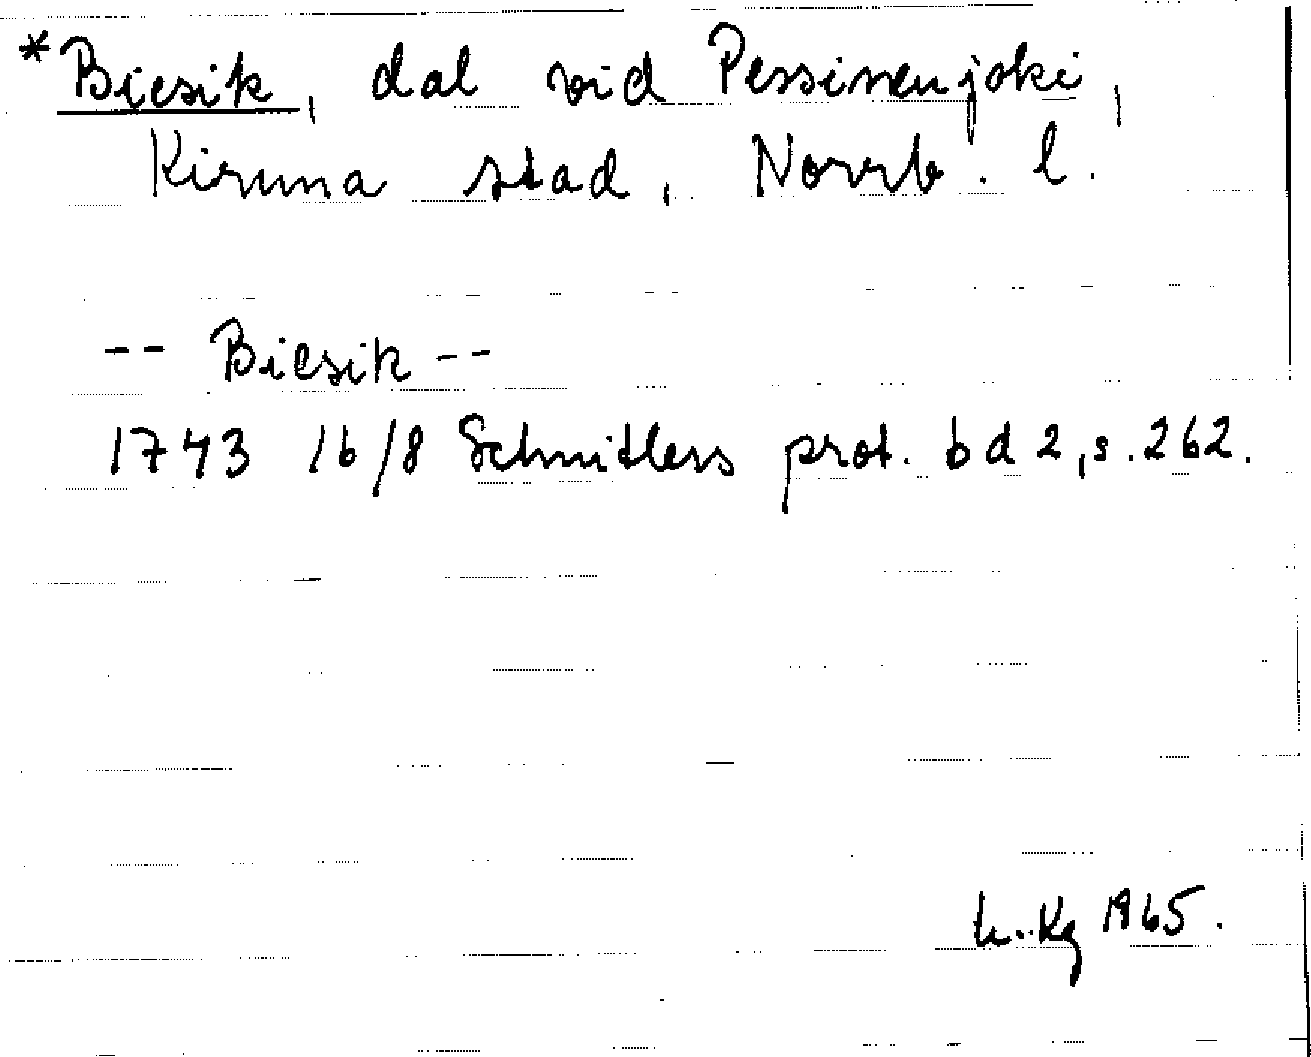 *Biesik, dal vid Pessinenjoki,
Kiruna stad, Norrb. l.
-- Biesik --
1743 16/8 Schnitlers prot. bd 2, s. 262.
1965.